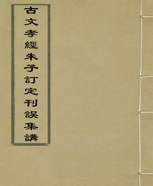 古文孝經朱子訂定刊誤集講